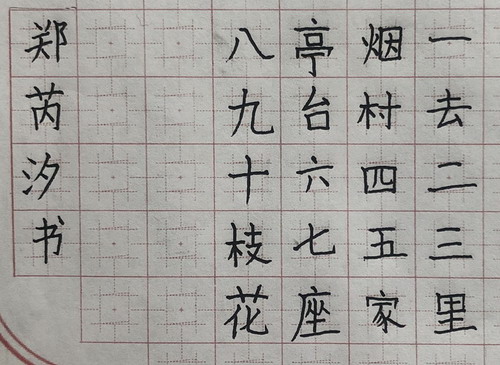 一去二三里
烟村四五家
亭台六七座
八九十枝花
郑芮汐书